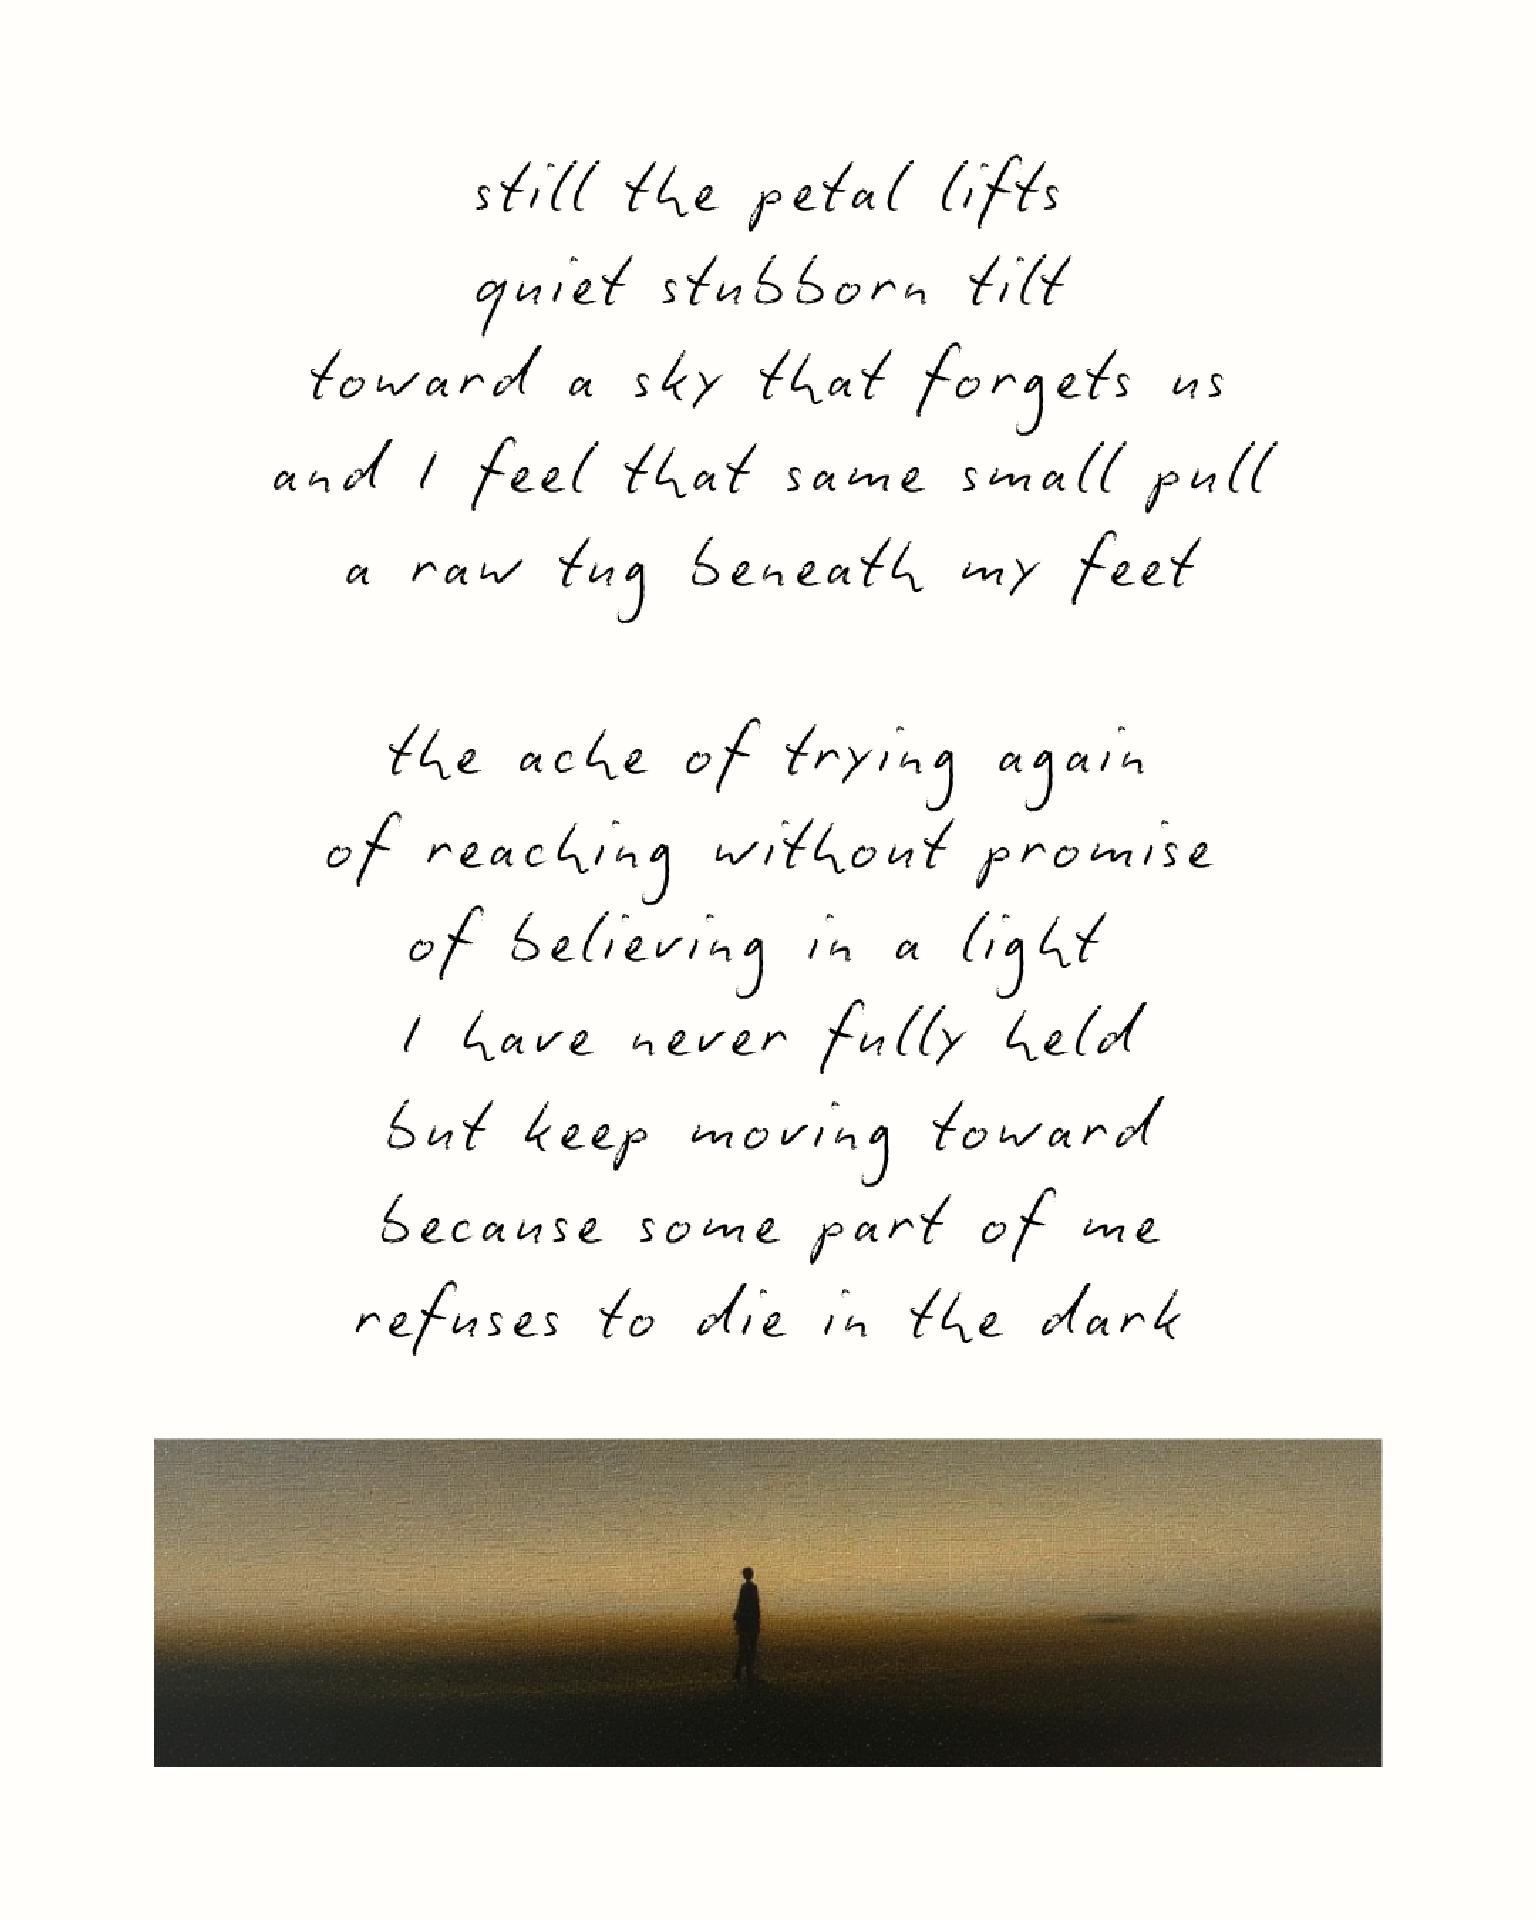 still the petal lifts
quiet stubborn tilt
toward a sky that forgets us
and I feel that same small pull
a raw tug beneath my feet
the ache of trying again
of reaching without promise
of believing in a light
I have never fully held
but keep moving toward
because some part of me
refuses to die in the dark